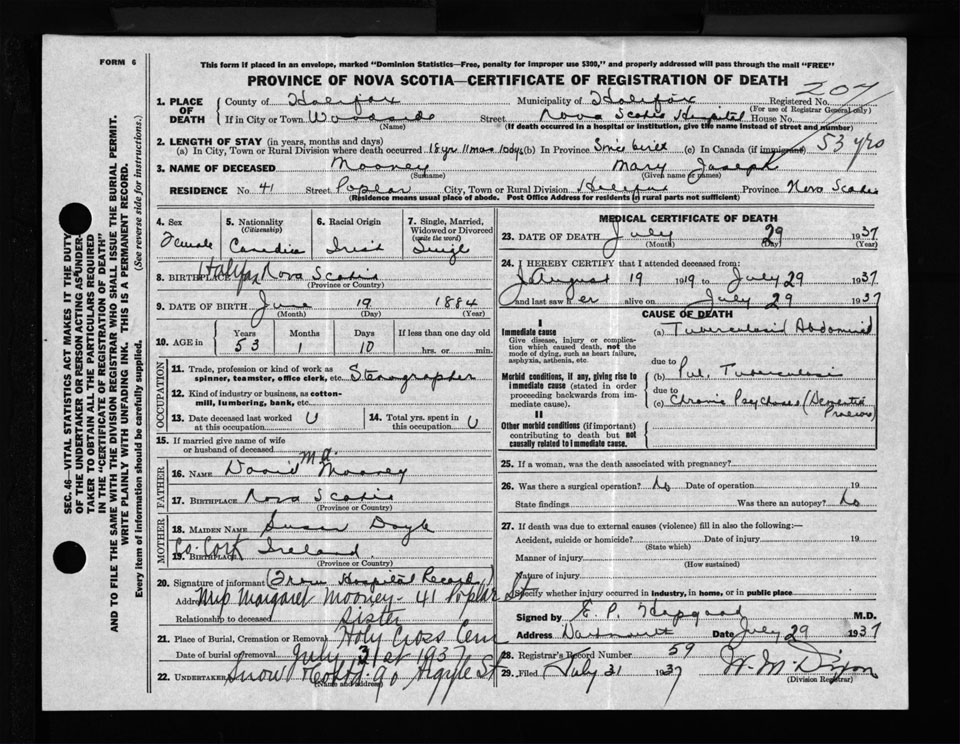 FORM 6
This form if placed in an envelope, marked "Dominion Statistics—Free, penalty for improper use $300," and properly addressed will pass through the mail "FREE"
PROVINCE OF NOVA SCOTIA—CERTIFICATE OF REGISTRATION OF DEATH
207
1. PLACE OF DEATH County of Halifax Municipality of Halifax Registered No.
(For use of Registrar General only)
If in City or Town Woodside Street Nova Scotia Hospital House No.
(Name) (If death occurred in a hospital or institution, give the name instead of street and number)
2. LENGTH OF STAY (in years, months and days)
(a) In City, Town or Rural Division where death occurred 18 yr 11 mos 10 dys (b) In Province Since birth (c) In Canada (if immigrant) 53 yrs
3. NAME OF DECEASED Mooney Mary Joseph
(Surname) (Given name or names)
RESIDENCE No. 41 Street Poplar City, Town or Rural Division Halifax Province Nova Scotia
(Residence means usual place of abode. Post Office Address for residents in rural parts not sufficient)
SEC. 46—VITAL STATISTICS ACT MAKES IT THE DUTY
OF THE UNDERTAKER OR PERSON ACTING AS UNDER-
TAKER TO OBTAIN ALL THE PARTICULARS REQUIRED
IN THE "CERTIFICATE OF REGISTRATION OF DEATH"
AND TO FILE THE SAME WITH THE DIVISION REGISTRAR, WHO SHALL ISSUE THE BURIAL PERMIT.
WRITE PLAINLY WITH UNFADING INK. THIS IS A PERMANENT RECORD.
Every item of information should be carefully supplied. (See reverse side for instructions.)
4. Sex 5. Nationality 6. Racial Origin 7. Single, Married,
(Citizenship) Widowed or Divorced
(write the word)
Female Canadian Irish Single
8. BIRTHPLACE Halifax Nova Scotia
(Province or Country)
9. DATE OF BIRTH June 19 1884
(Month) (Day) (Year)
10. AGE in Years Months Days If less than one day old
53 1 10 hrs. or min.
OCCUPATION
11. Trade, profession or kind of work as
spinner, teamster, office clerk, etc. Stenographer
12. Kind of industry or business, as cotton-
mill, lumbering, bank, etc.
13. Date deceased last worked at this occupation U 14. Total yrs. spent in this occupation U
15. If married give name of wife
or husband of deceased
FATHER
16. NAME David Mooney
17. BIRTHPLACE Nova Scotia
(Province or Country)
MOTHER
18. MAIDEN NAME Susan Doyle
19. BIRTHPLACE Co. Cork Ireland
(Province or Country)
20. Signature of informant (From Hospital Records)
Address Margaret Mooney - 41 Poplar St
Relationship to deceased Sister
21. Place of Burial, Cremation or Removal Holy Cross Cem
Date of burial or removal July 31st 1937
22. UNDERTAKER Snow & Co Ltd. 90 Argyle St
(Name and address)
MEDICAL CERTIFICATE OF DEATH
23. DATE OF DEATH July 29 1937
(Month) (Day) (Year)
24. I HEREBY CERTIFY that I attended deceased from:
August 19 1919 to July 29 1937
and last saw her alive on July 29 1937
CAUSE OF DEATH
I
Immediate cause (a) Tuberculosis Abdominal
Give disease, injury or complica-
tion which caused death, not the
mode of dying, such as heart failure,
asphyxia, asthenia, etc.
due to
Morbid conditions, if any, giving rise to
immediate cause (stated in order
proceeding backwards from im-
mediate cause).
(b) Pul. Tuberculosis
due to
(c) Chronic Psychoses (Dementia Praecox)
II
Other morbid conditions (if important)
contributing to death but not
causally related to immediate cause.
25. If a woman, was the death associated with pregnancy?
26. Was there a surgical operation? No Date of operation 19
State findings Was there an autopsy? No
27. If death was due to external causes (violence) fill in also the following:—
Accident, suicide or homicide? Date of injury 19
(State which)
Manner of injury
(How sustained)
Nature of injury
Specify whether injury occurred in industry, in home, or in public place
Signed by E. P. Hopgood M.D.
Address Dartmouth Date July 29 1937
28. Registrar's Record Number 59
29. Filed July 31 1937 W. M. Dixon
(Division Registrar)